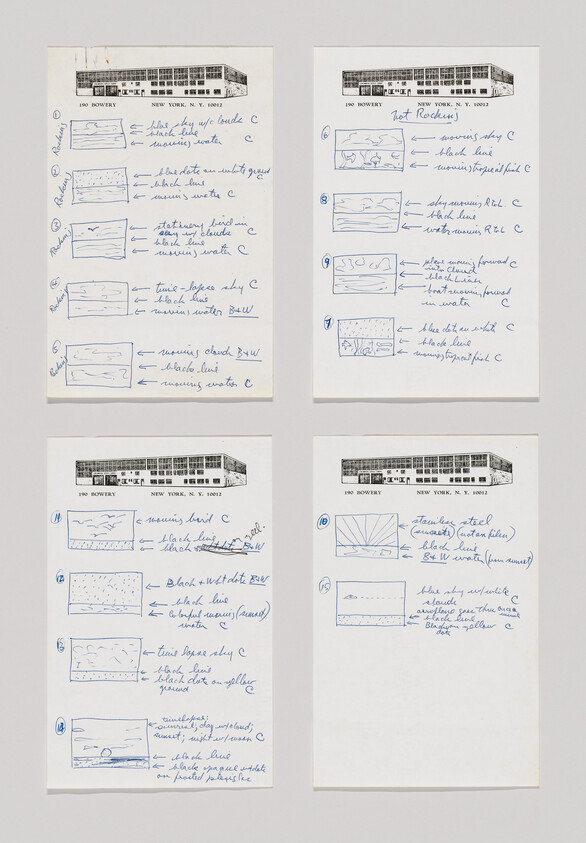 190 BOWERY NEW YORK, N. Y. 10012
1 Rocking
blue sky w/ clouds C
black line
moving water C
2 Rocking
blue dots on white ground C
black line
moving water C
3 Rocking
stationary bird in
sky w/ clouds C
black line
moving water C
4 Rocking
time-lapse sky C
black line
moving water B+W
5 Rocking
moving clouds B+W
black line
moving water C
190 BOWERY NEW YORK, N. Y. 10012
not Rocking
6
moving sky C
black line
moving tropical fish C
8
sky moving R to L C
black line
water moving R to L C
9
plane moving forward C
into cloud
black line
boat moving forward
in water C
7
blue dots on white C
black line
moving tropical fish C
190 BOWERY NEW YORK, N. Y. 10012
11
moving bird C
black line
black B+W
12
Black + Wht dots B+W
black line
colorful moving (sunset)
water C
13
time lapse sky C
black line
black dots on yellow
ground C
14
timelapse;
sunrise; day w/ cloud;
sunset; night w/ moon C
black line
black opaque dots
on
190 BOWERY NEW YORK, N. Y. 10012
10
stainless steel
(not on film)
black line
B+W water (from sunset)
15
blue sky w/ white
clouds C
airplane goes thru once a
minute
black line
Black on yellow C
dots